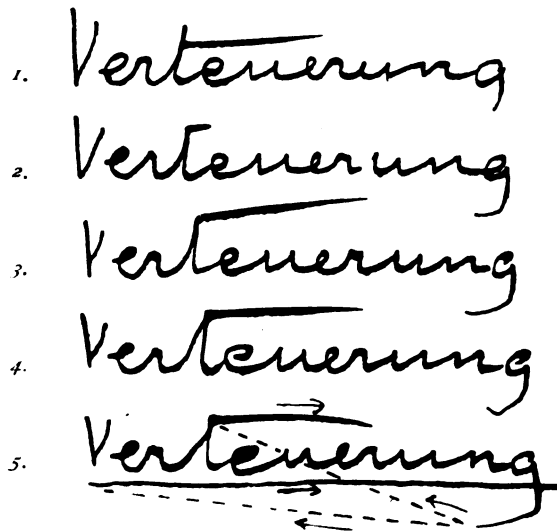 1. Verteuerung
2. Verteuerung
3. Verteuerung
4. Verteuerung
5. Verteuerung